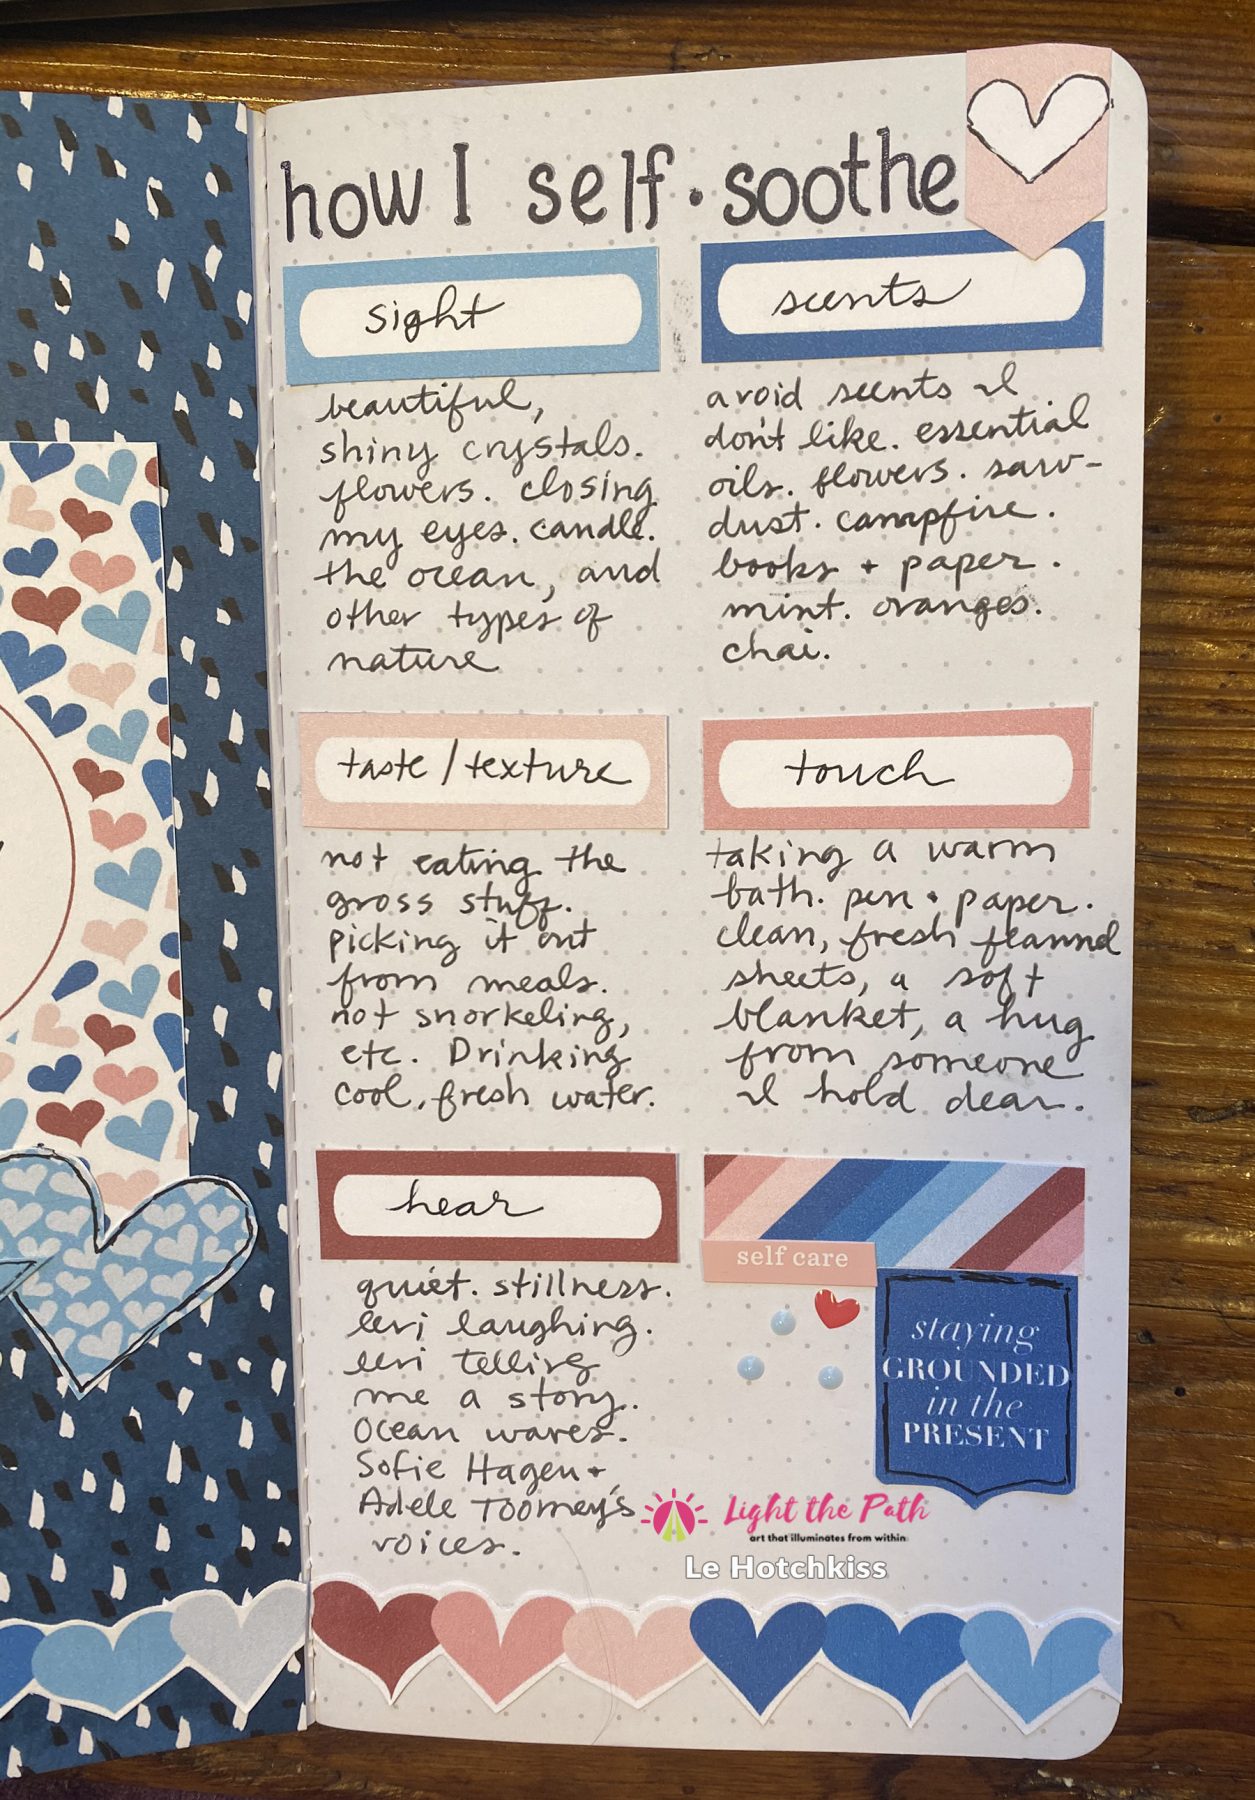 how I self-soothe
sight
beautiful,
shiny crystals.
flowers. closing
my eyes. candle.
the ocean, and
other types of
nature
scents
avoid scents I
don't like. essential
oils. flowers. saw-
dust. campfire.
books + paper.
mint. oranges.
chai.
taste/texture
not eating the
gross stuff.
picking it out
from meals.
not snorkeling,
etc. Drinking
cool, fresh water.
touch
taking a warm
bath. pen + paper.
clean, fresh flannel
sheets, a soft
blanket, a hug
from someone
I hold dear.
hear
quiet. stillness.
laughing.
telling
me a story.
Ocean waves.
Sofie Hagen +
Adele Toomey's
voices.
self care
staying
GROUNDED
in the
PRESENT
Light the Path
art that illuminates from within
Le Hotchkiss